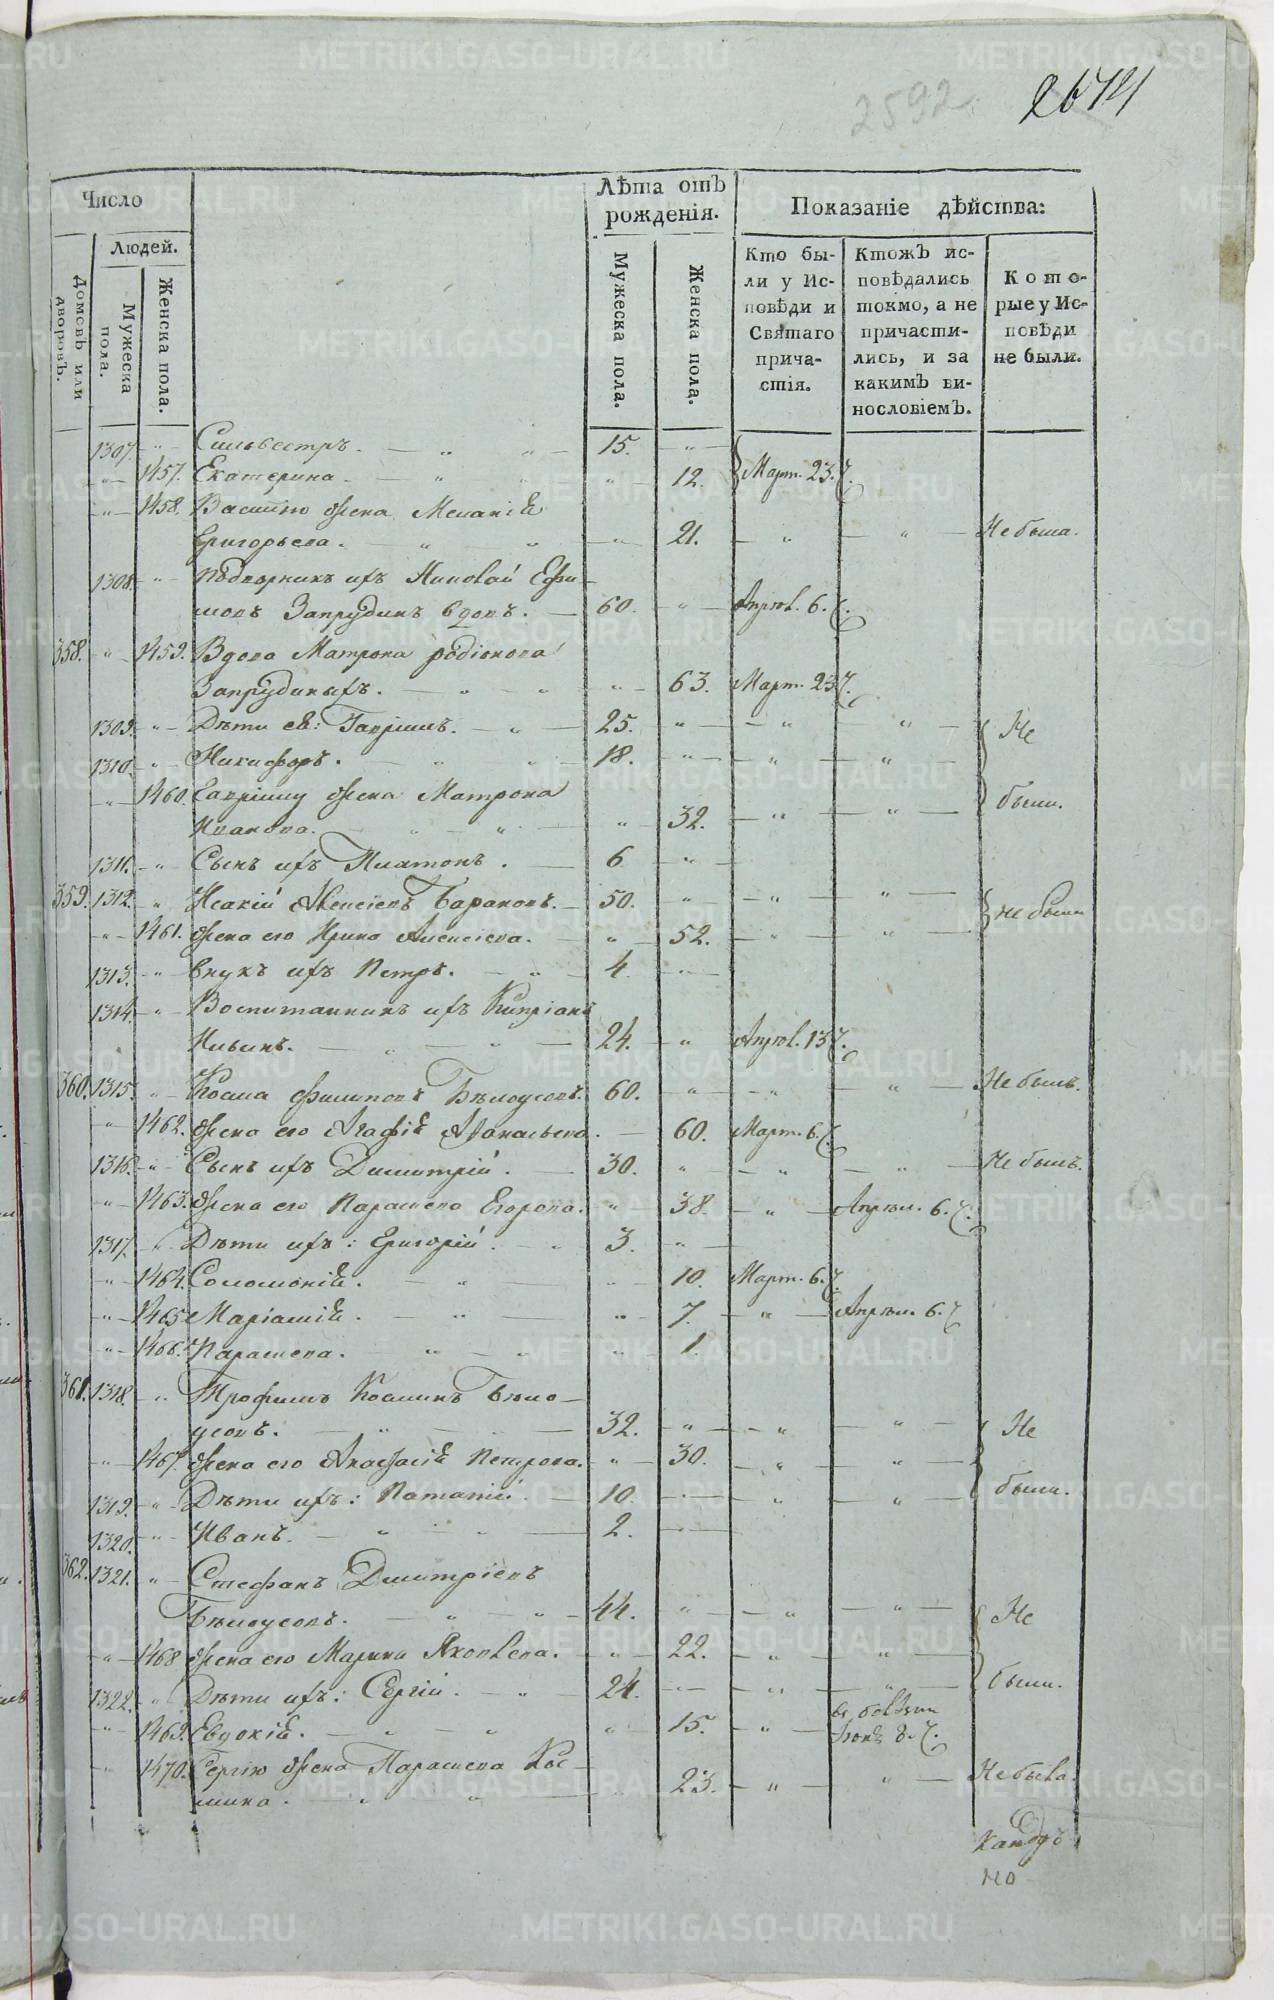 2592
2674
Число
Лѣта отъ рожденія.
Показаніе дѣйства:
Людей.
Домовъ или дворовъ.
Мужеска пола.
Женска пола.
Мужеска пола.
Женска пола.
Кто бы-
ли у Ис-
повѣди и
Святаго
прича-
стія.
Ктожъ ис-
повѣдались
токмо, а не
причасти-
лись, и за
какимъ ви-
нословіемъ.
Кото-
рые у Ис-
повѣди
не были.
1307. Сильвестръ. 15.
1457. Екатерина. 12. Март. 23.
1458. Василію жена Меланія
Григорьева. 21. Не была.
1308. Подворникъ ихъ Николай Ефи-
мовъ Запрудинъ вдовъ. 60. Апрѣл. 6.
358. 1459. Вдова Матрона Родіонова
Запрудиныхъ. 63. Март. 23.
1309. Дѣти ея: Гавріилъ. 25. Не
1310. Никифоръ. 18.
1460. Гавріилу жена Матрона были.
Иванова. 32.
1311. Сынъ ихъ Платонъ. 6
359. 1312. Исакій Алексіевъ Барановъ. 50. не были
1461. жена его Ирина Алексіева. 52.
1313. внукъ ихъ Петръ. 4.
1314. Воспитанникъ ихъ Кипріанъ
Ильинъ. 24. Апрѣл. 13
360. 1315. Косма Филиповъ Бѣлоусовъ. 60. Не былъ.
1462. жена его Агафія Афанасьева. 60. Март. 6.
1316. Сынъ ихъ Димитрій. 30. Не былъ.
1463. жена его Параскева Егорова. 38. Апрѣл. 6.
1317. Дѣти ихъ: Григорій. 3.
1464. Соломонія. 10. Март. 6.
1465. Маріамія. 7. Апрѣл. 6.
1466. Параскева. 1.
361. 1318. Трофимъ Косминъ Бѣло-
усовъ. 32. Не
1467. жена его Анастасія Петрова. 30.
1319. Дѣти ихъ: Потапій. 10. были.
1320. Иванъ. 2.
362. 1321. Стефанъ Димитріевъ
Бѣлоусовъ. 44. Не
1468 жена его Марина Яковлева. 22.
1322. Дѣти ихъ: Сергій. 24. были.
1469. Евдокія. 15. въ болѣзни
Іюня 8.
1470. Сергію жена Параскева Кос-
мина. 23. Не была.
METRIKI.GASO-URAL.RU